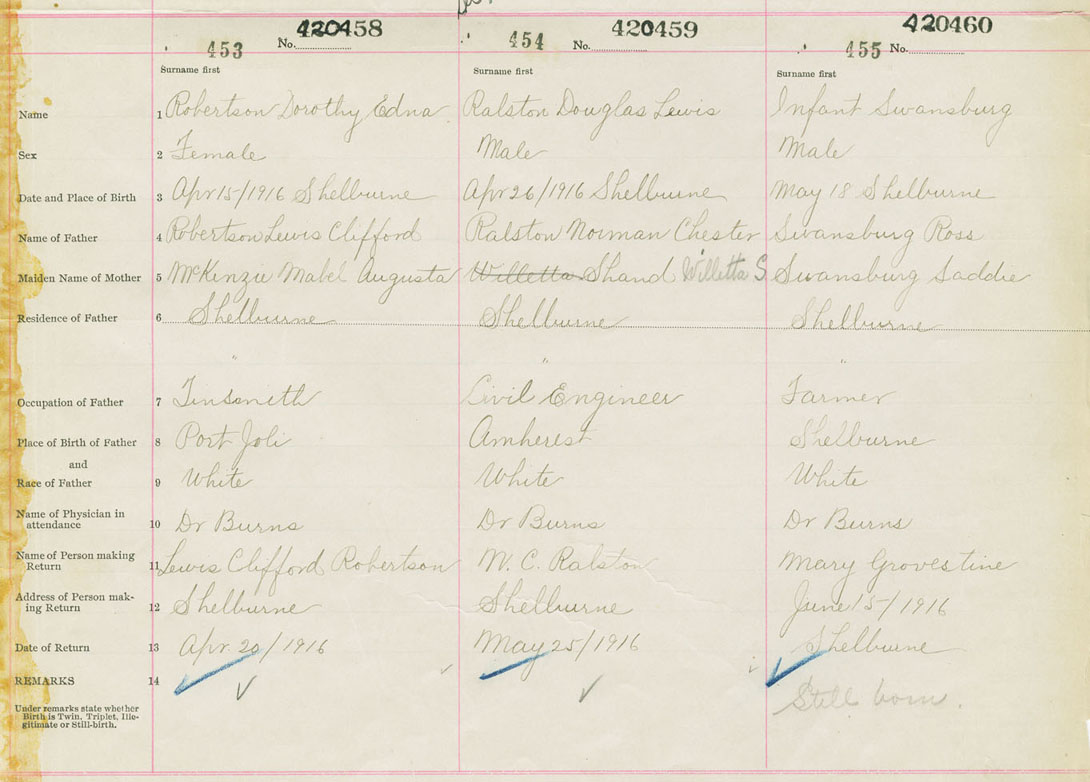 420458 420459 420460
453 No. 454 No. 455 No.
Surname first Surname first Surname first
Name 1 Robertson Dorothy Edna Ralston Douglas Lewis Infant Swansburg
Sex 2 Female Male Male
Date and Place of Birth 3 Apr 15/1916 Shelburne Apr 26/1916 Shelburne May 18 Shelburne
Name of Father 4 Robertson Lewis Clifford Ralston Norman Chester Swansburg Ross
Maiden Name of Mother 5 McKenzie Mabel Augusta Willetta Shand Willetta S Swansburg Saddie
Residence of Father 6 Shelburne Shelburne Shelburne
" " "
Occupation of Father 7 Tinsmith Civil Engineer Farmer
Place of Birth of Father 8 Port Joli Amherest Shelburne
and
Race of Father 9 White White White
Name of Physician in
attendance 10 Dr Burns Dr Burns Dr Burns
Name of Person making
Return 11 Lewis Clifford Robertson N. C. Ralston Mary Grovestine
Address of Person mak-
ing Return 12 Shelburne Shelburne June 15/1916
Date of Return 13 Apr. 20/1916 May 25/1916 Shelburne
REMARKS 14
Still born.
Under remarks state whether
Birth is Twin, Triplet, Ille-
gitimate or Still-birth.